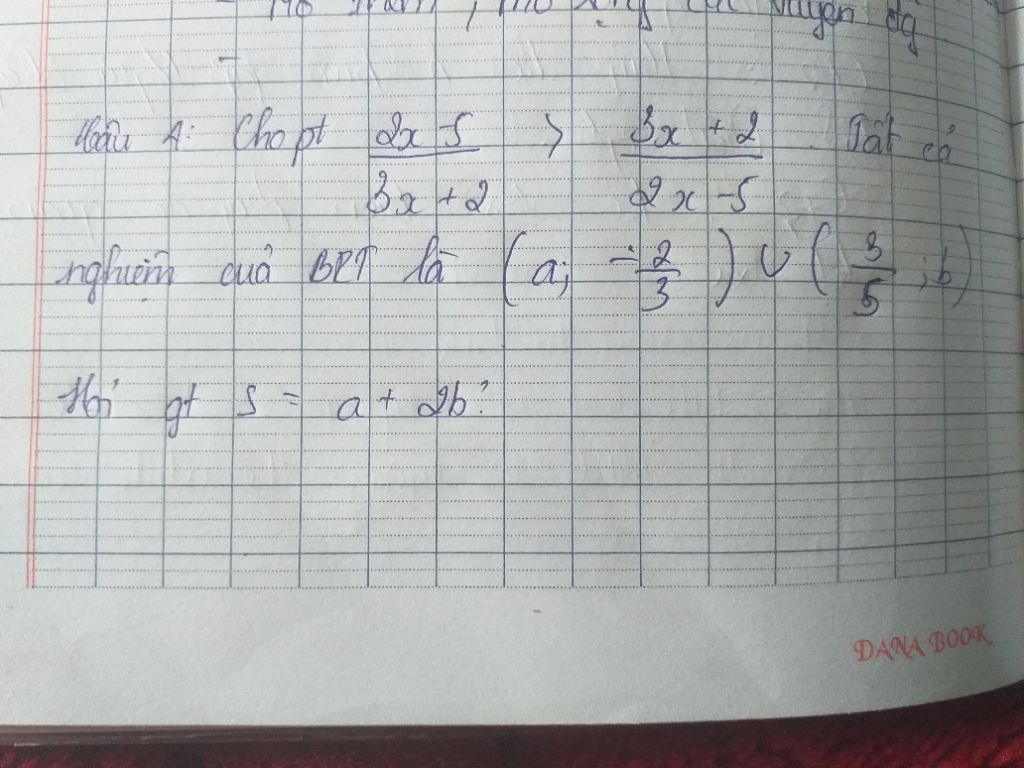 Câu 1: Cho pt \frac{2x-5}{3x+2} > \frac{3x+2}{2x-5}. Tất cả
nghiệm quả BPT là (a; -\frac{2}{3}) ∪ (\frac{3}{5}; b)
Hỏi gt S = a + 2b?
DANA BOOK